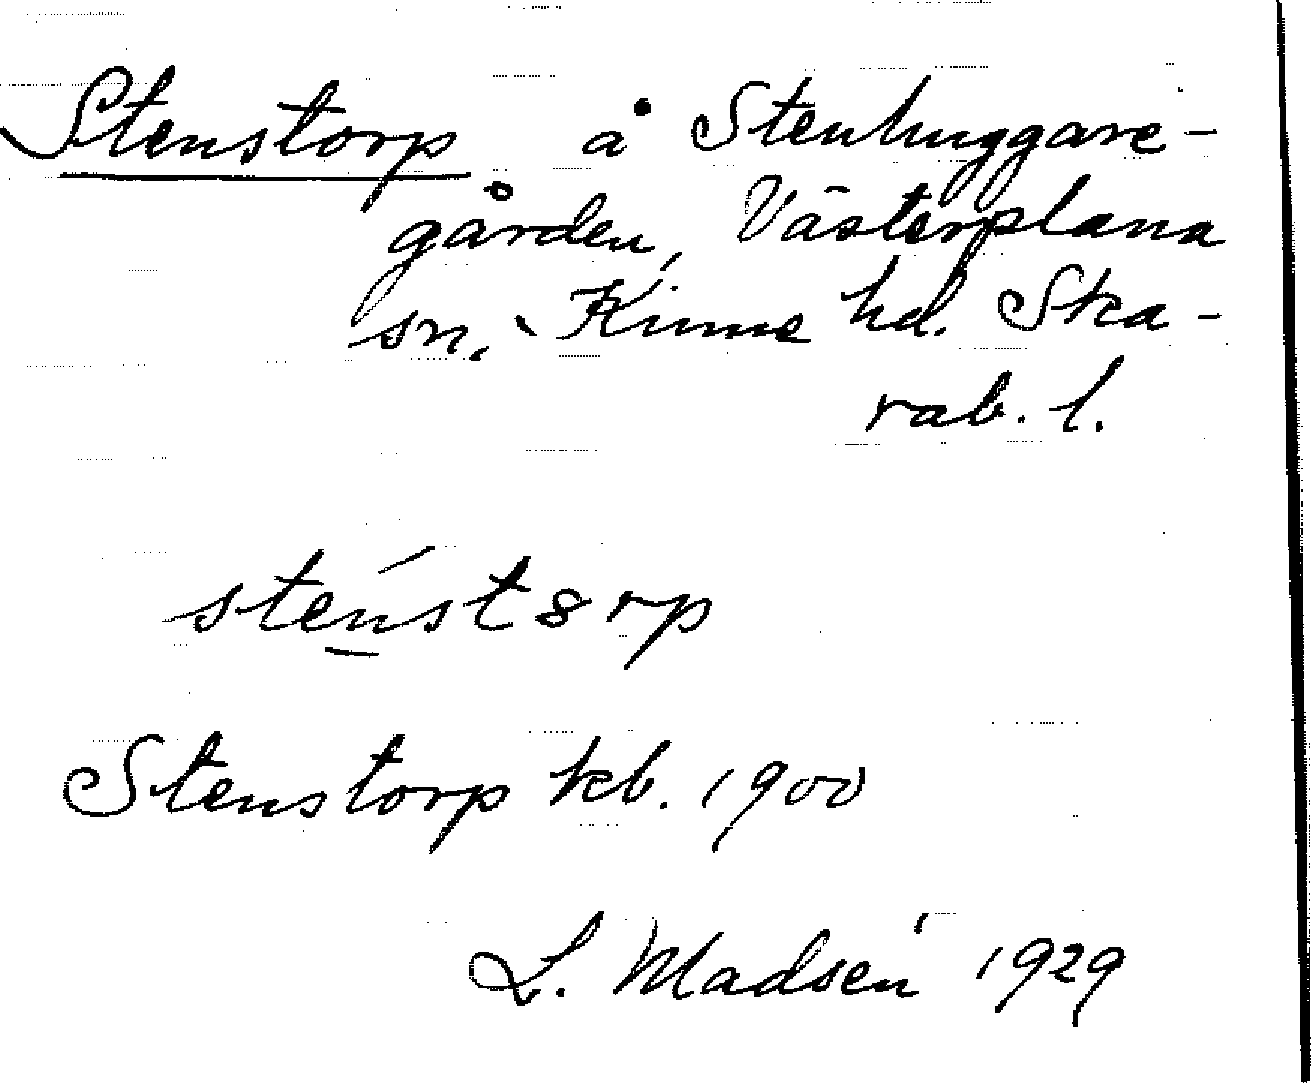 Stenstorp å Stenhuggare-
gården, Västerplana
sn, Kinne hd. Ska-
rab. l.
sténst8rp
Stenstorp kb. 1900
L. Madsén 1929